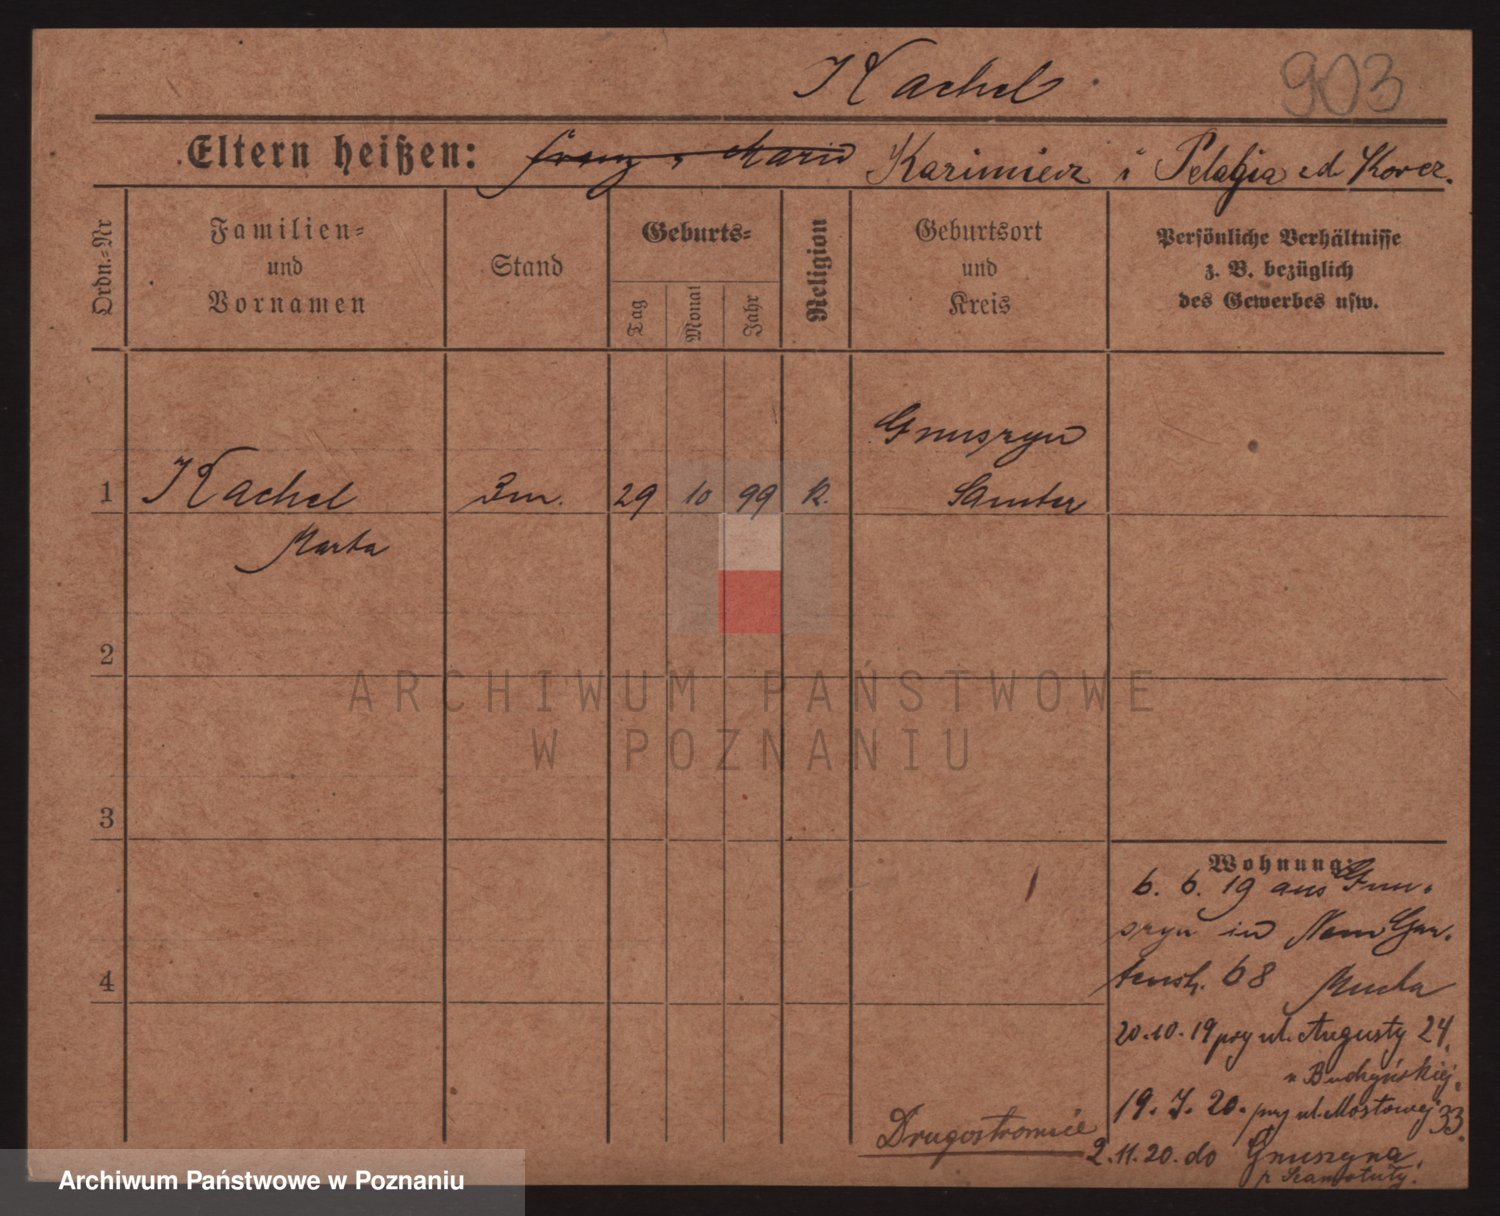 Kachel
903
Eltern heißen: Franz u Marie Kazimierz i Pelagia
Ordn.-Nr
Familien-
und
Vornamen
Stand
Geburts-
Tag
Monat
Jahr
Religion
Geburtsort
und
Kreis
Persönliche Verhältnisse
z. B. bezüglich
des Gewerbes usw.
Gnuszyn
1 Kachel 29 10 99 K. Samter
Marta
2
ARCHIWUM PAŃSTWOWE
W POZNANIU
3
4
Wohnung:
6. 6. 19 aus Gnu-
szyn in Neue Gar-
tenstr. 68 Mucha
20.10.19 przy ul. Augusty 24,
u Budzyńskiej,
19. 7. 20. przy ul. Mostowej 33.
2.11.20. do Gnuszyna,
p. Szamotuły.
Archiwum Państwowe w Poznaniu